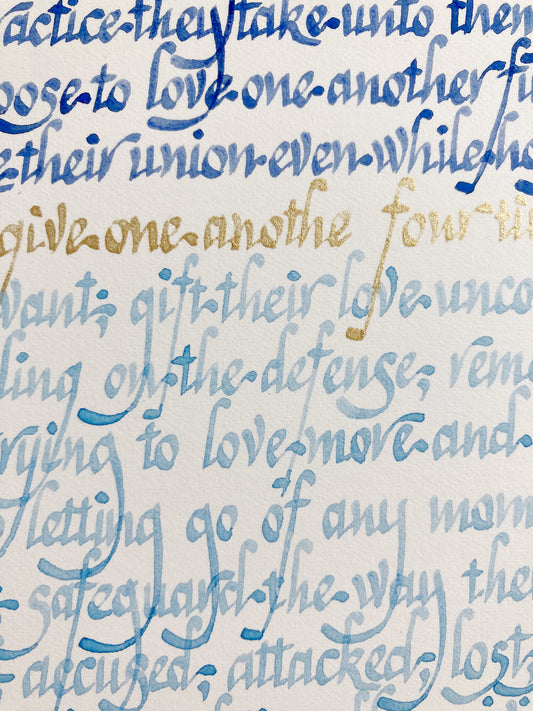 ractice they take unto them
oose to love one another fu
e their union even while ho
give one anothe four ti
want; gift their love unco
ling on the defense; reme
rying to love more and
letting go of any mom
safeguard the way the
accused, attacked, lost,